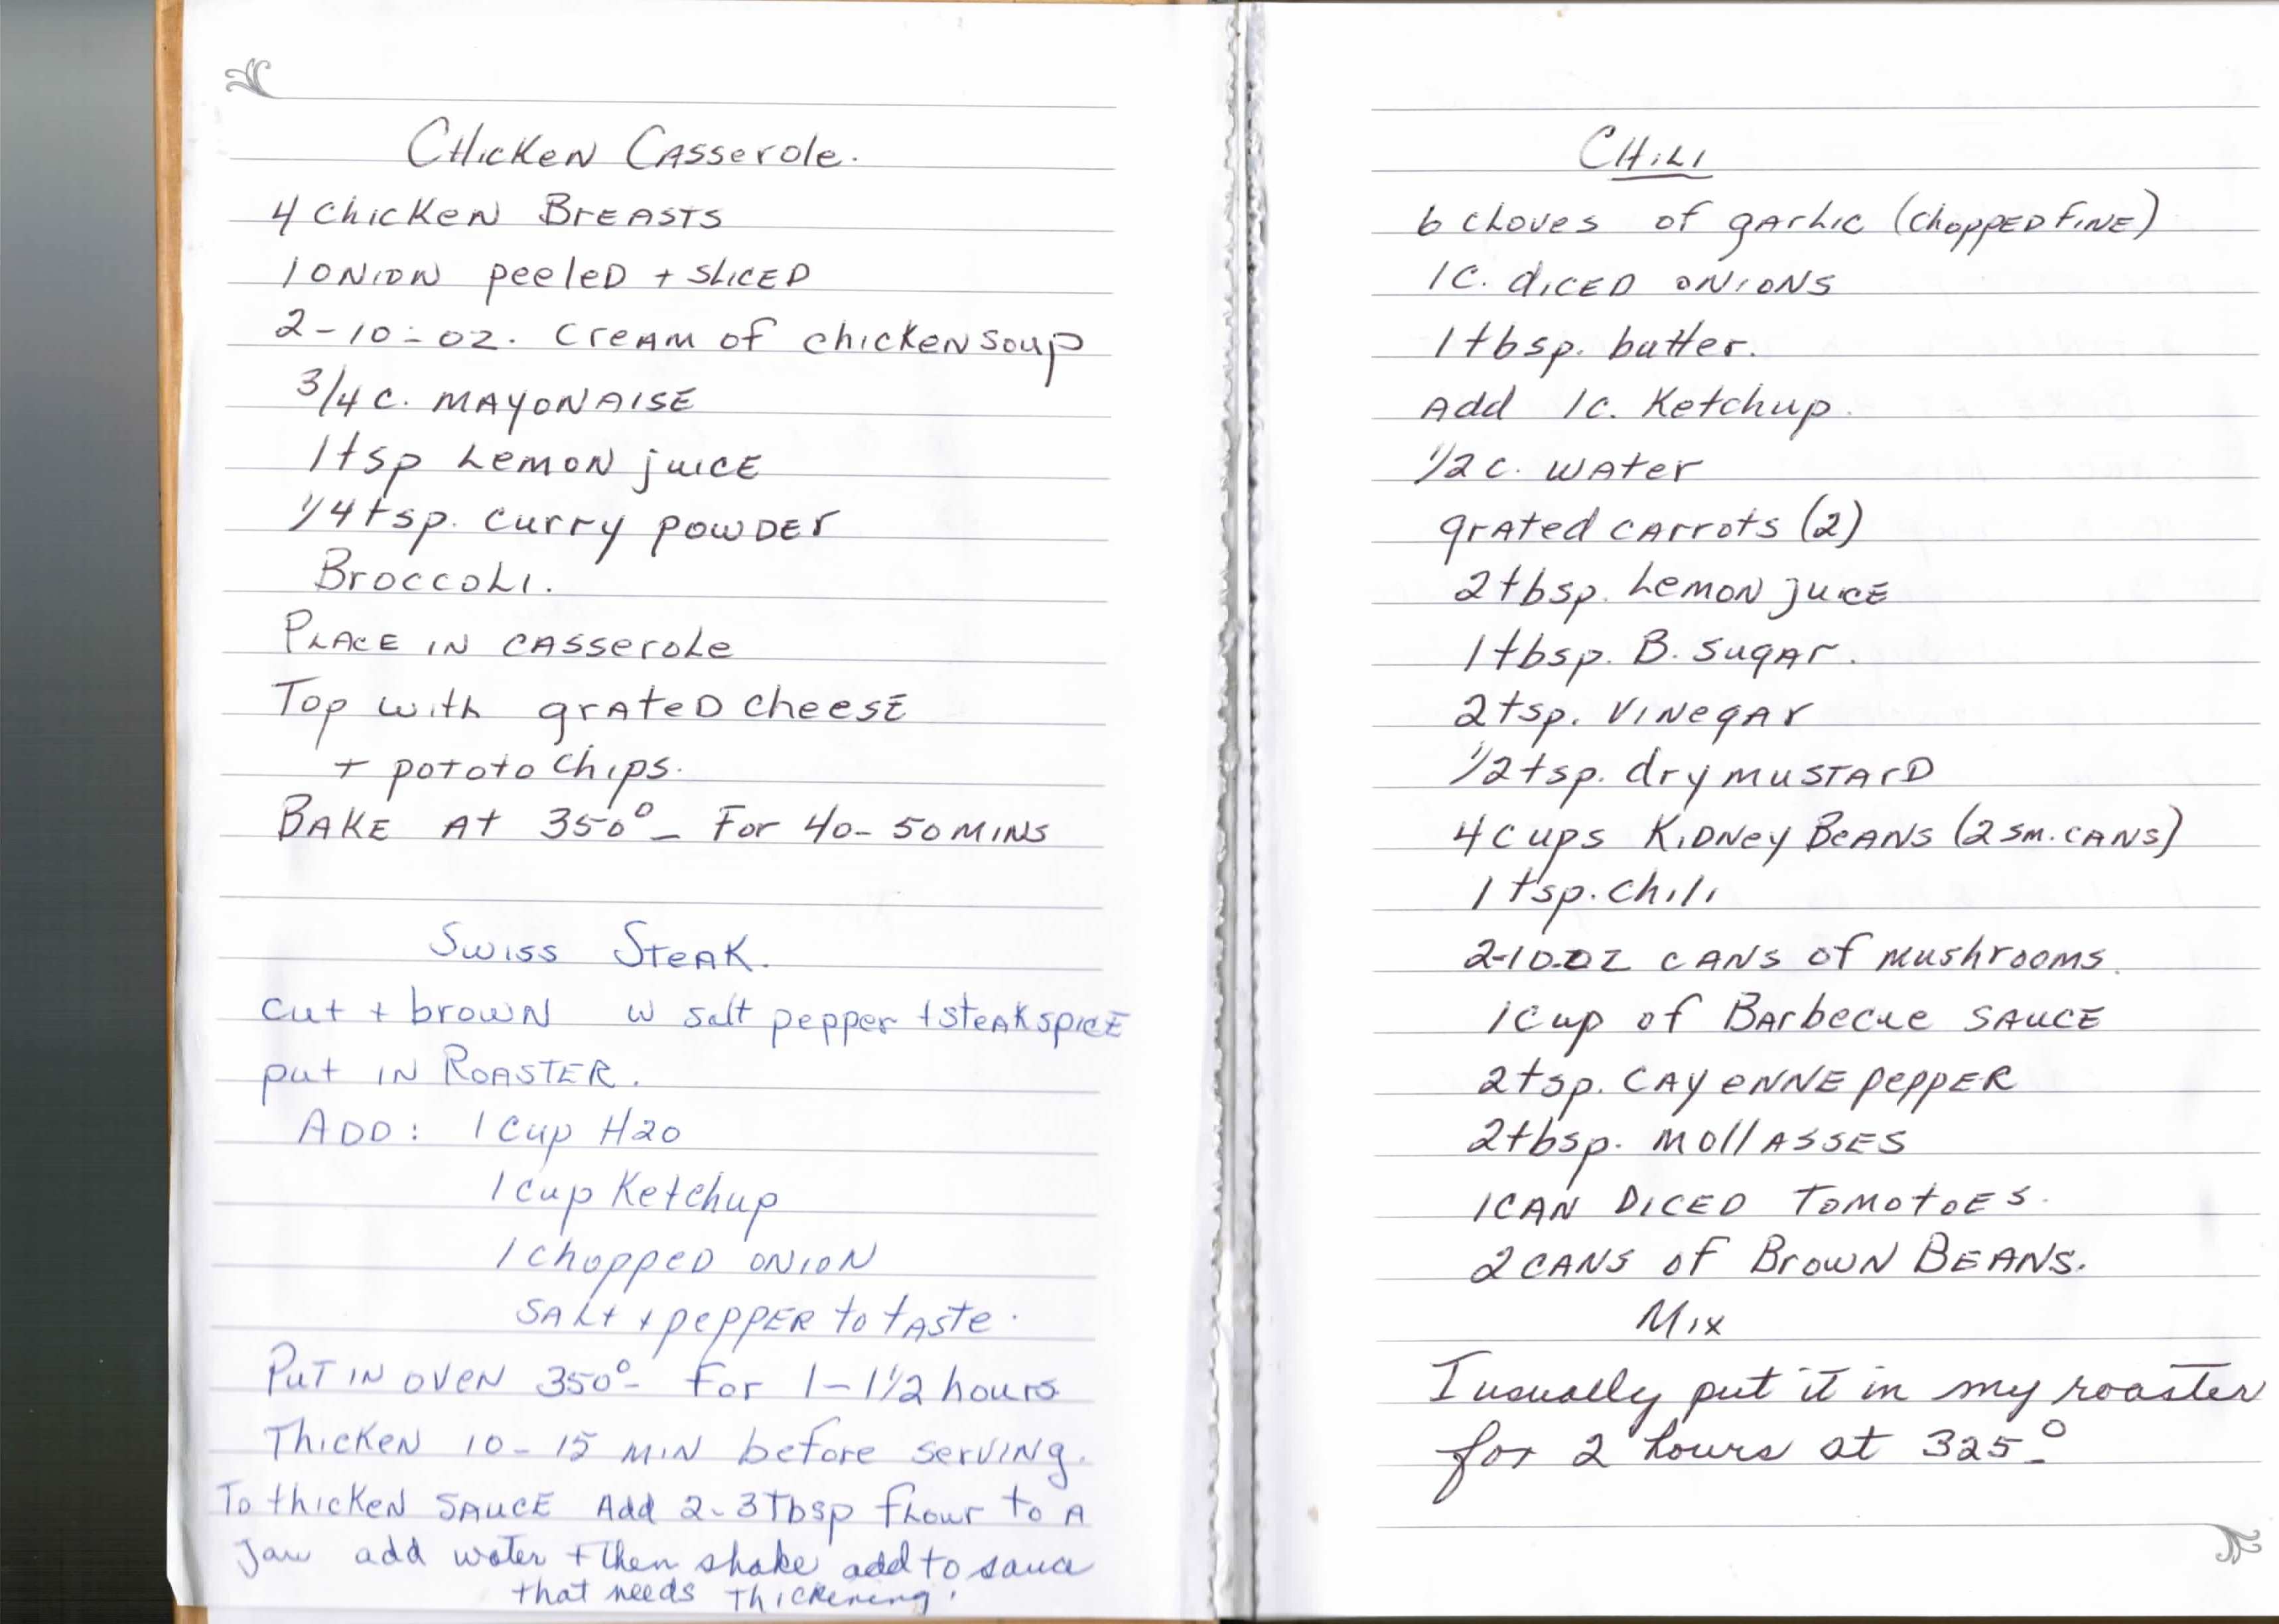 Chicken Casserole.
4 Chicken Breasts
1 onion peeled + sliced
2-10-oz. cream of chicken soup
3/4 c. mayonaise
1 tsp Lemon juice
1/4 tsp. curry powder
Broccoli.
Place in casserole
Top with grated cheese
+ pototo chips.
Bake at 350° - For 40-50 mins
Swiss Steak.
cut + brown w salt pepper + steak spice
put in Roaster.
Add: 1 cup H2O
1 cup Ketchup
1 chopped onion
Salt + pepper to taste.
Put in oven 350° - for 1-1 1/2 hours
Thicken 10-15 min before serving.
To thicken sauce Add 2-3 Tbsp flour to a
jaw add water + then shake add to sauce
that needs thickening.
Chili
6 cloves of garlic (chopped fine)
1 c. diced onions
1 tbsp. butter.
Add 1 c. Ketchup.
1/2 c. water
grated carrots (2)
2 tbsp. Lemon juice
1 tbsp. B. Sugar.
2 tsp. vinegar
1/2 tsp. dry mustard
4 cups Kidney Beans (2 sm. cans)
1 tsp. chili
2-10-oz cans of mushrooms.
1 cup of Barbecue sauce
2 tsp. cayenne pepper
2 tbsp. mollasses
1 can diced tomotoes.
2 cans of Brown Beans.
Mix
I usually put it in my roaster
for 2 hours at 325°